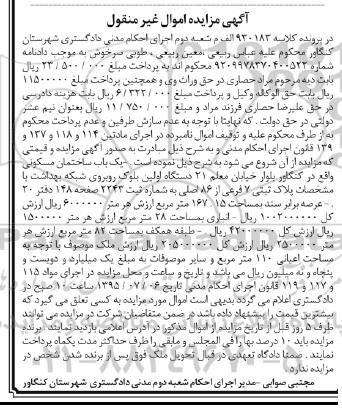 آگهی مزایده اموال غیر منقول
در پرونده کلاسه ۹۳۰۱۸۳ الف م شعبه دوم اجرای احکام مدنی دادگستری شهرستان
کنگاور محکوم علیه عباس ربیعی ،معین ربیعی ، طوبی سرخوش به موجب دادنامه
شماره ۹۲۰۹۹۷۸۳۷۰۴۰۰۵۲۲ محکوم اند به پرداخت مبلغ ۰۰۰ / ۵۰۰ / ۲۳ ریال
بابت دیه مرحوم مراد حصاری در حق وراث وی و همچنین پرداخت مبلغ ۱۱۵۰۰۰۰۰
ریال بابت حق الوکاله وکیل و پرداخت مبلغ ۰۰۰ / ۳۲۲ / ۶ ریال بابت هزینه دادرسی
در حق علیرضا حصاری فرزند مراد و مبلغ ۰۰۰ / ۷۵۰ / ۱۱ ریال بعنوان نیم عشر
دولتی در حق دولت . که نهایتا با توجه به عدم سازش طرفین و عدم پرداخت محکوم
به از طرف محکوم علیه و توقیف اموال نامبرده در اجرای مادتین ۱۱۴ و ۱۱۸ و ۱۳۷ و
۱۳۹ قانون اجرای احکام مدنی و به شرح ذیل مبادرت به صدور آگهی مزایده و قیمتی
که مزایده از آن شروع می شود به شرح ذیل نموده است . -یک باب ساختمان مسکونی
واقع در کنگاور بلوار خیابان معلم ۲۱ دستگاه اولین بلوک روبروی شبکه بهداشت با
مشخصات پلاک ثبتی ۷ فرعی از ۸۶ اصلی به شماره ثبت ۲۲۴۳ صفحه ۱۴۸ دفتر ۲۰
. -عرصه برابر سند بمساحت ۱۵ . ۱۶۷ متر مربع ارزش هر متر ۶۰۰۰۰۰۰ ریال ارزش
کل ۱۰۰۲۰۰۰۰۰۰ ریال - انباری بمساحت ۲۸ متر مربع ارزش هر متر ۱۵۰۰۰۰۰
ریال ارزش کل ۴۲۰۰۰۰۰۰ ریال - طبقه همکف بمساحت ۸۲ متر مربع ارزش هر
متر ۲۵۰۰۰۰۰ ریال ارزش کل ۲۰۵۰۰۰۰۰۰ ریال ارزش ملک موصوف با توجه به
مساحت اعیانی ۱۱۰ متر مربع و سایر موصوفات به مبلغ یک میلیارد و دویست و
پنجاه و نه میلیون ریال می باشد و تاریخ و ساعت و محل مزایده در اجرای مواد ۱۱۵
و ۱۱۷ و ۱۱۹ قانون اجرای احکام مدنی تاریخ ۰۶ / ۰۷ / ۱۳۹۵ ساعت ۱۰ صبح در
دادگستری اعلام می گردد بدیهی است اموال مورد مزایده به کسی تعلق می گیرد که
بیشترین قیمت را پیشنهاد داده باشد در ضمن متقاضیان شرکت در مزایده می توانند
ظرف ۵ روز قبل از تاریخ مزایده از اموال مذکور در آدرس اعلامی بازدید نمایند . برنده
مزایده باید ۱۰ درصد بها را فی المجلس و مابقی را ظرف حداکثر مدت یکماه پرداخت
نمایند . ضمنا دادگاه تعهدی در قبال تحویل ملک فوق پس از برنده شدن شخص در
مزایده ندارد.
مجتبی صوابی -مدیر اجرای احکام شعبه دوم مدنی دادگستری شهرستان کنگاور